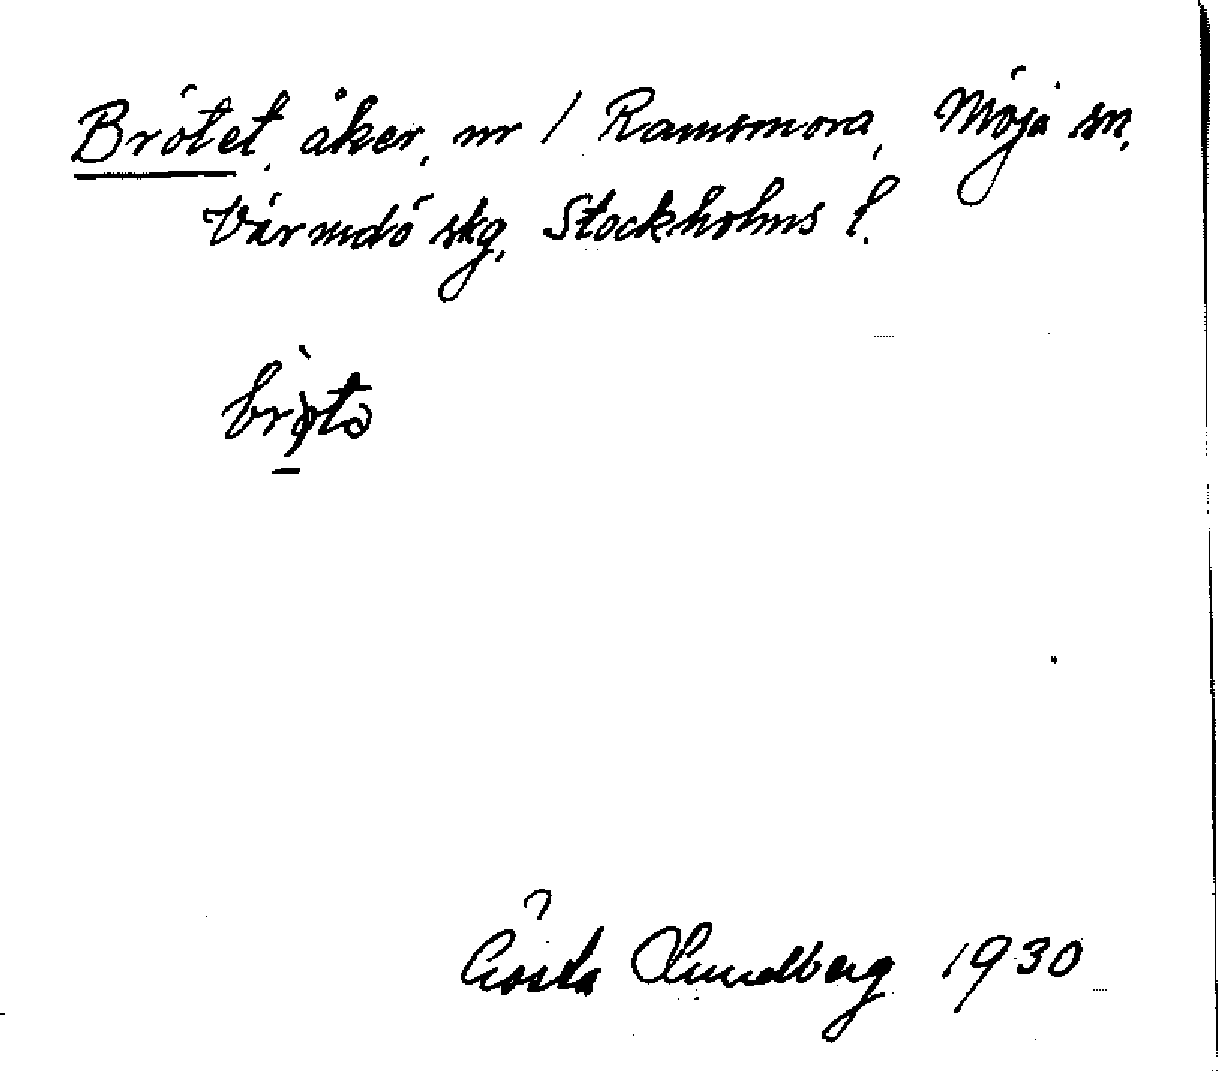 Brötet, åker, nr 1 Ramsmora, Möja sn,
Värmdö skg, Stockholms l.
Gösta Lundberg 1930